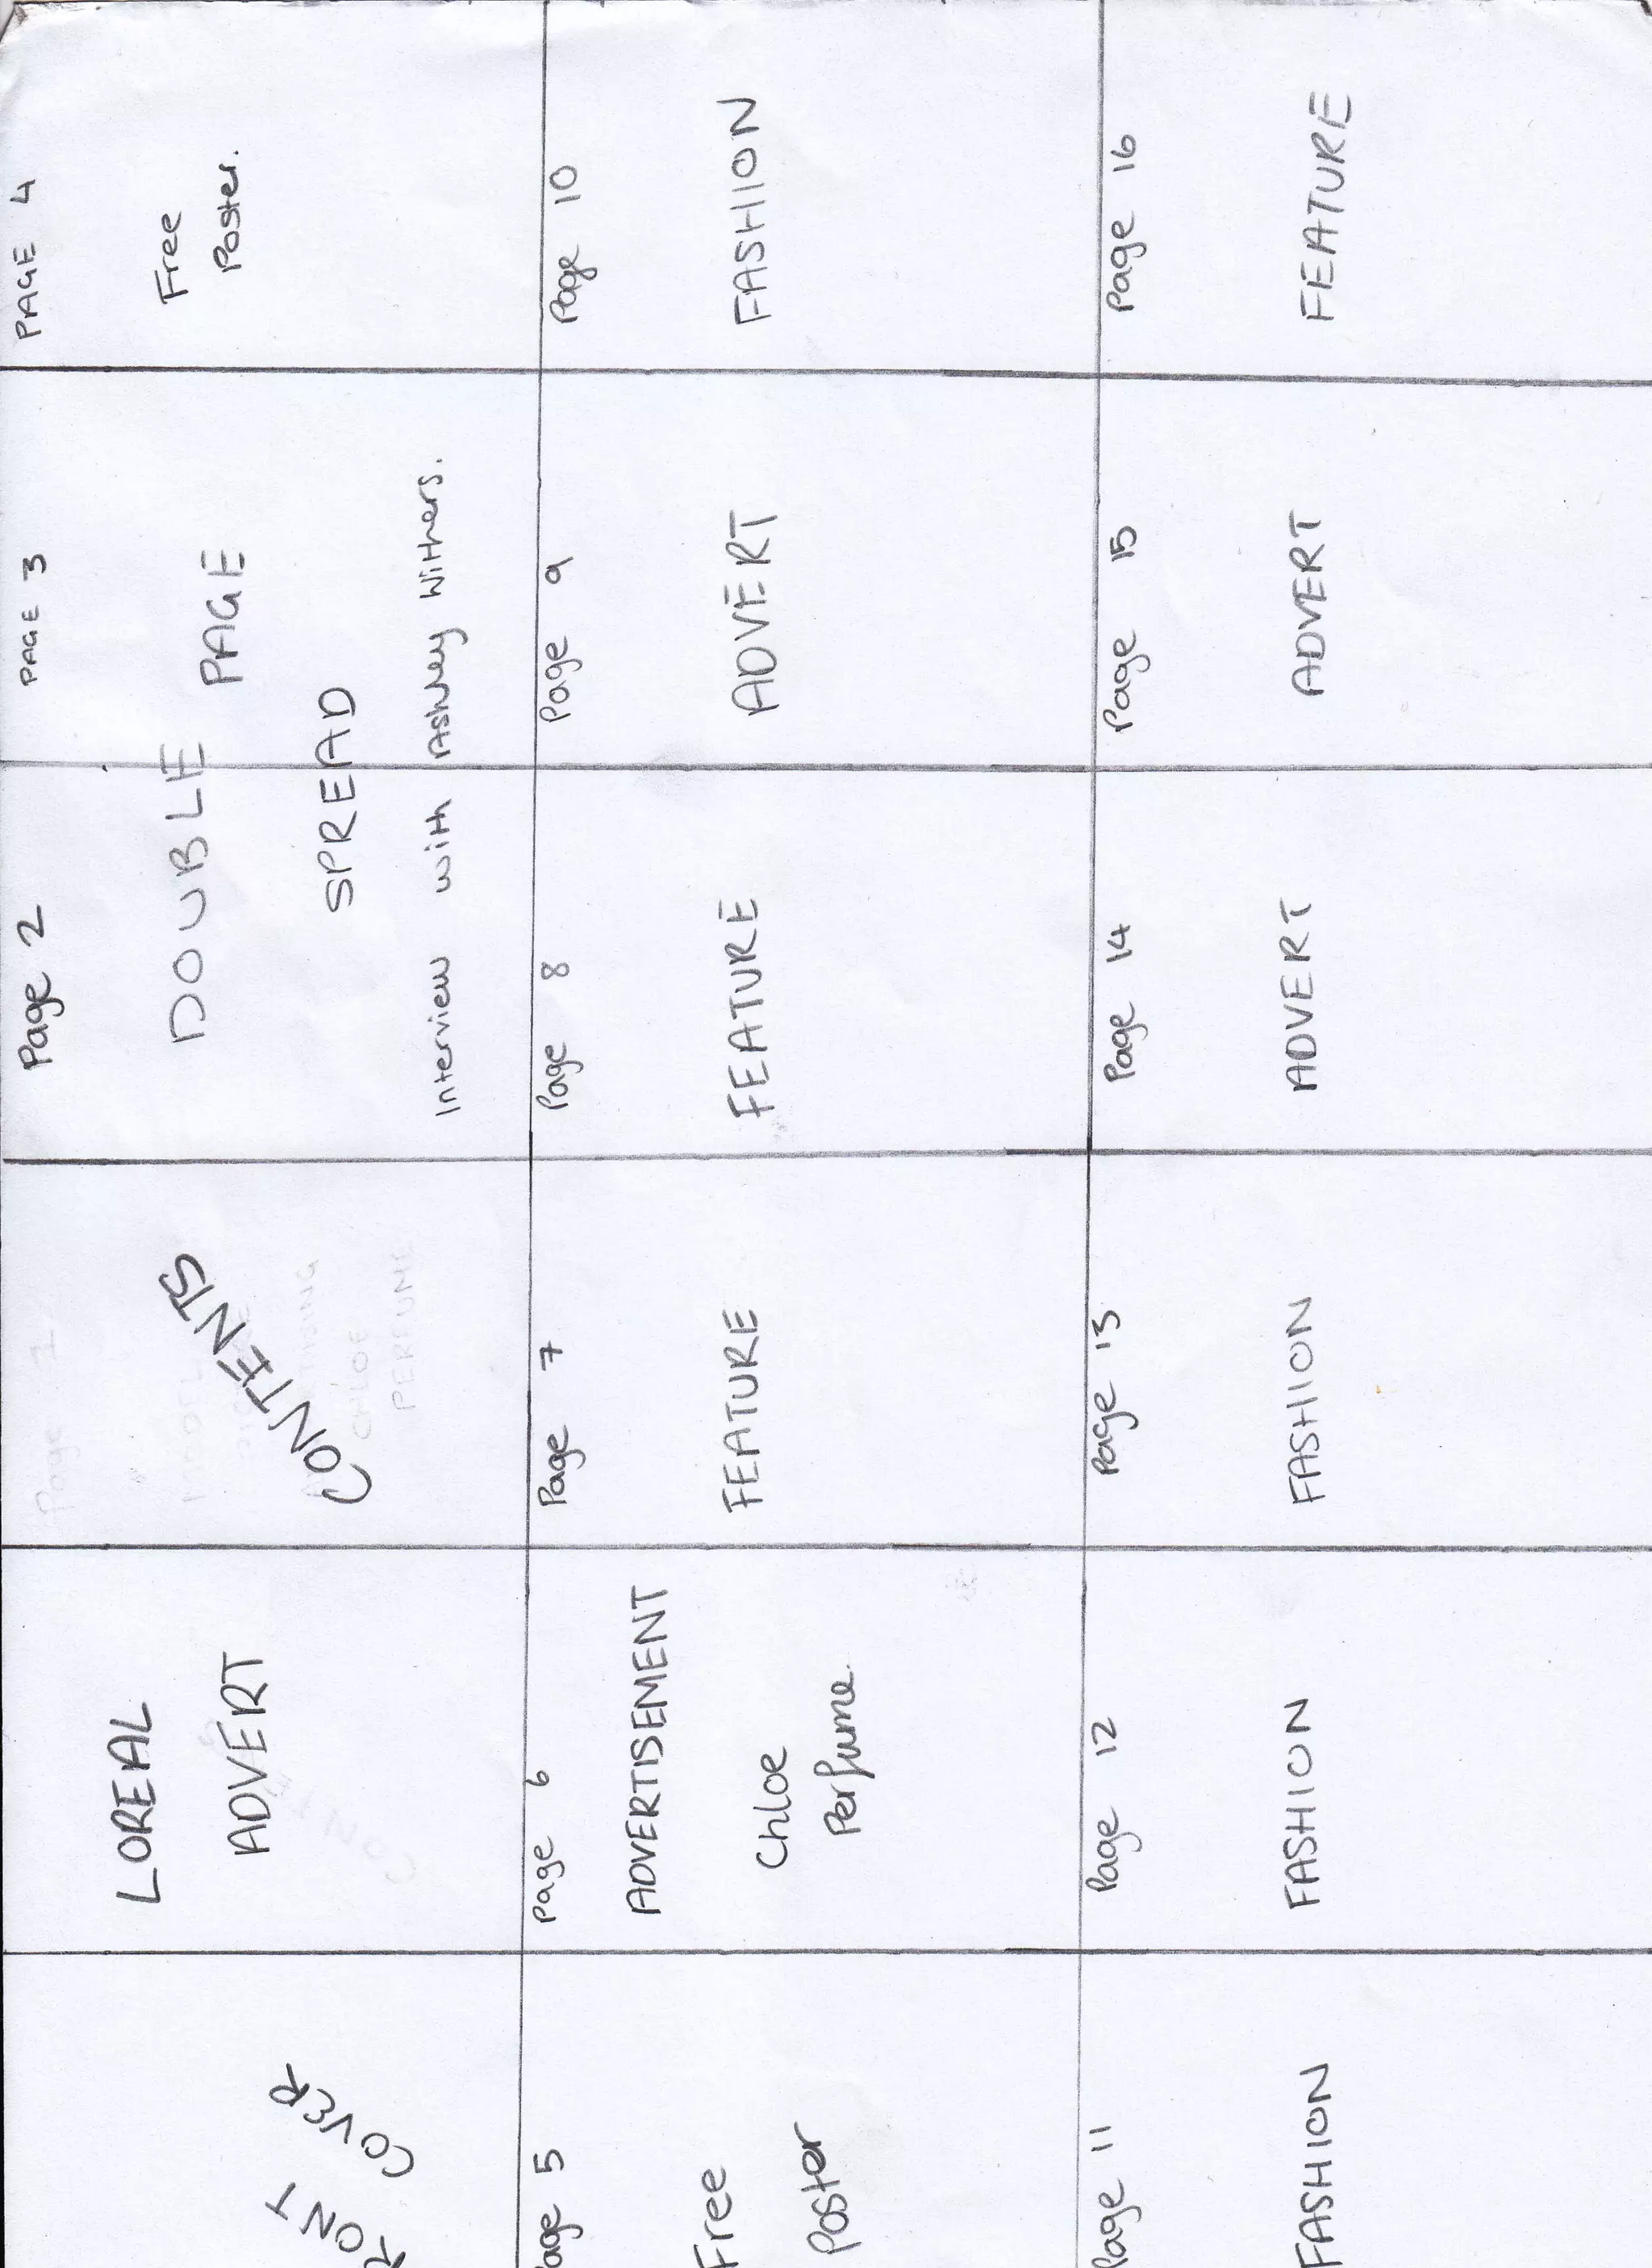 FRONT
COVER
LOREAL
ADVERT
CONTENTS
Page 2
PAGE 3
DOUBLE PAGE
SPREAD
Interview with Ashley Withers.
PAGE 4
Free
Poster.
Page 5
Free
Poster
Page 6
ADVERTISEMENT
Chloe
Perfume.
Page 7
FEATURE
Page 8
FEATURE
Page 9
ADVERT
Page 10
FASHION
Page 11
FASHION
Page 12
FASHION
Page 13
FASHION
Page 14
ADVERT
Page 15
ADVERT
Page 16
FEATURE